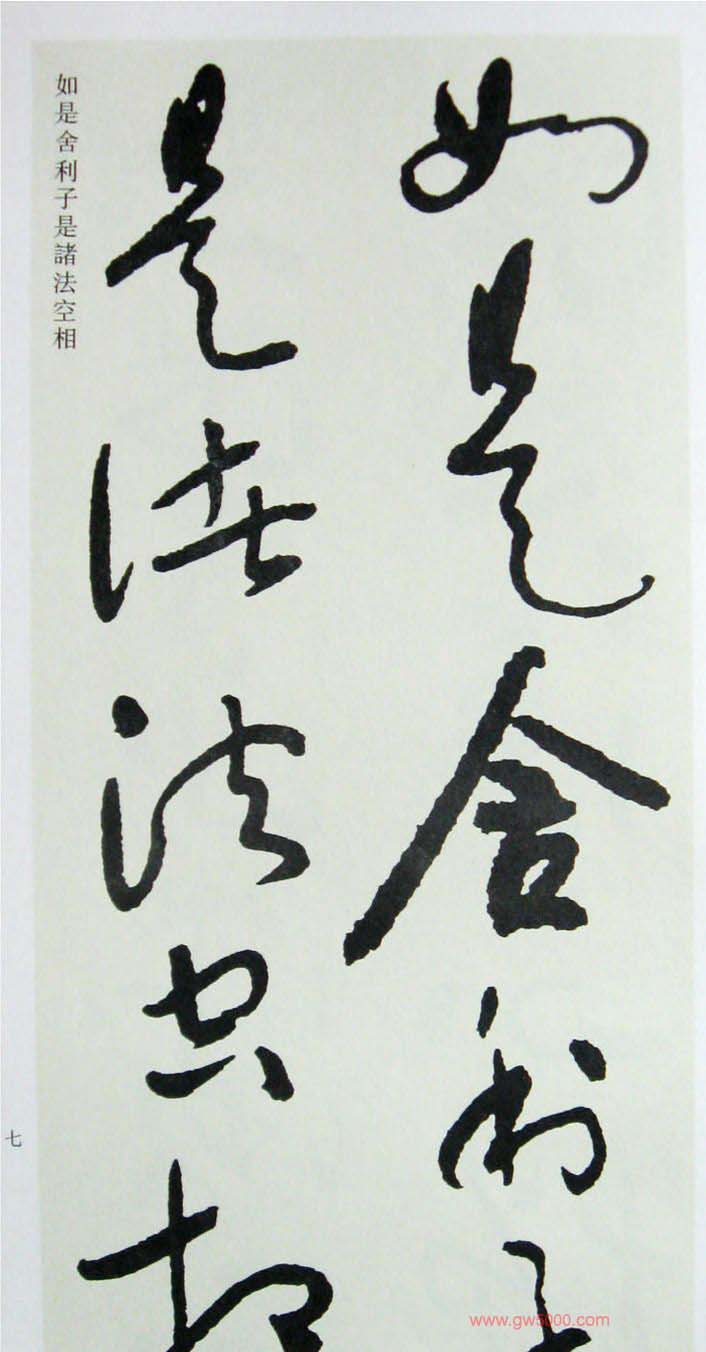 如是舍利子
是諸法空相
如是舍利子是諸法空相
七
www.gw5000.com